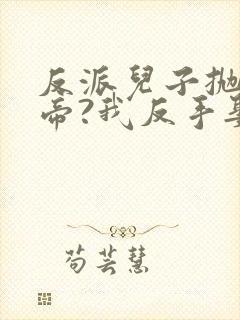 反派兒子拋
帝?我反手
苟芸慧